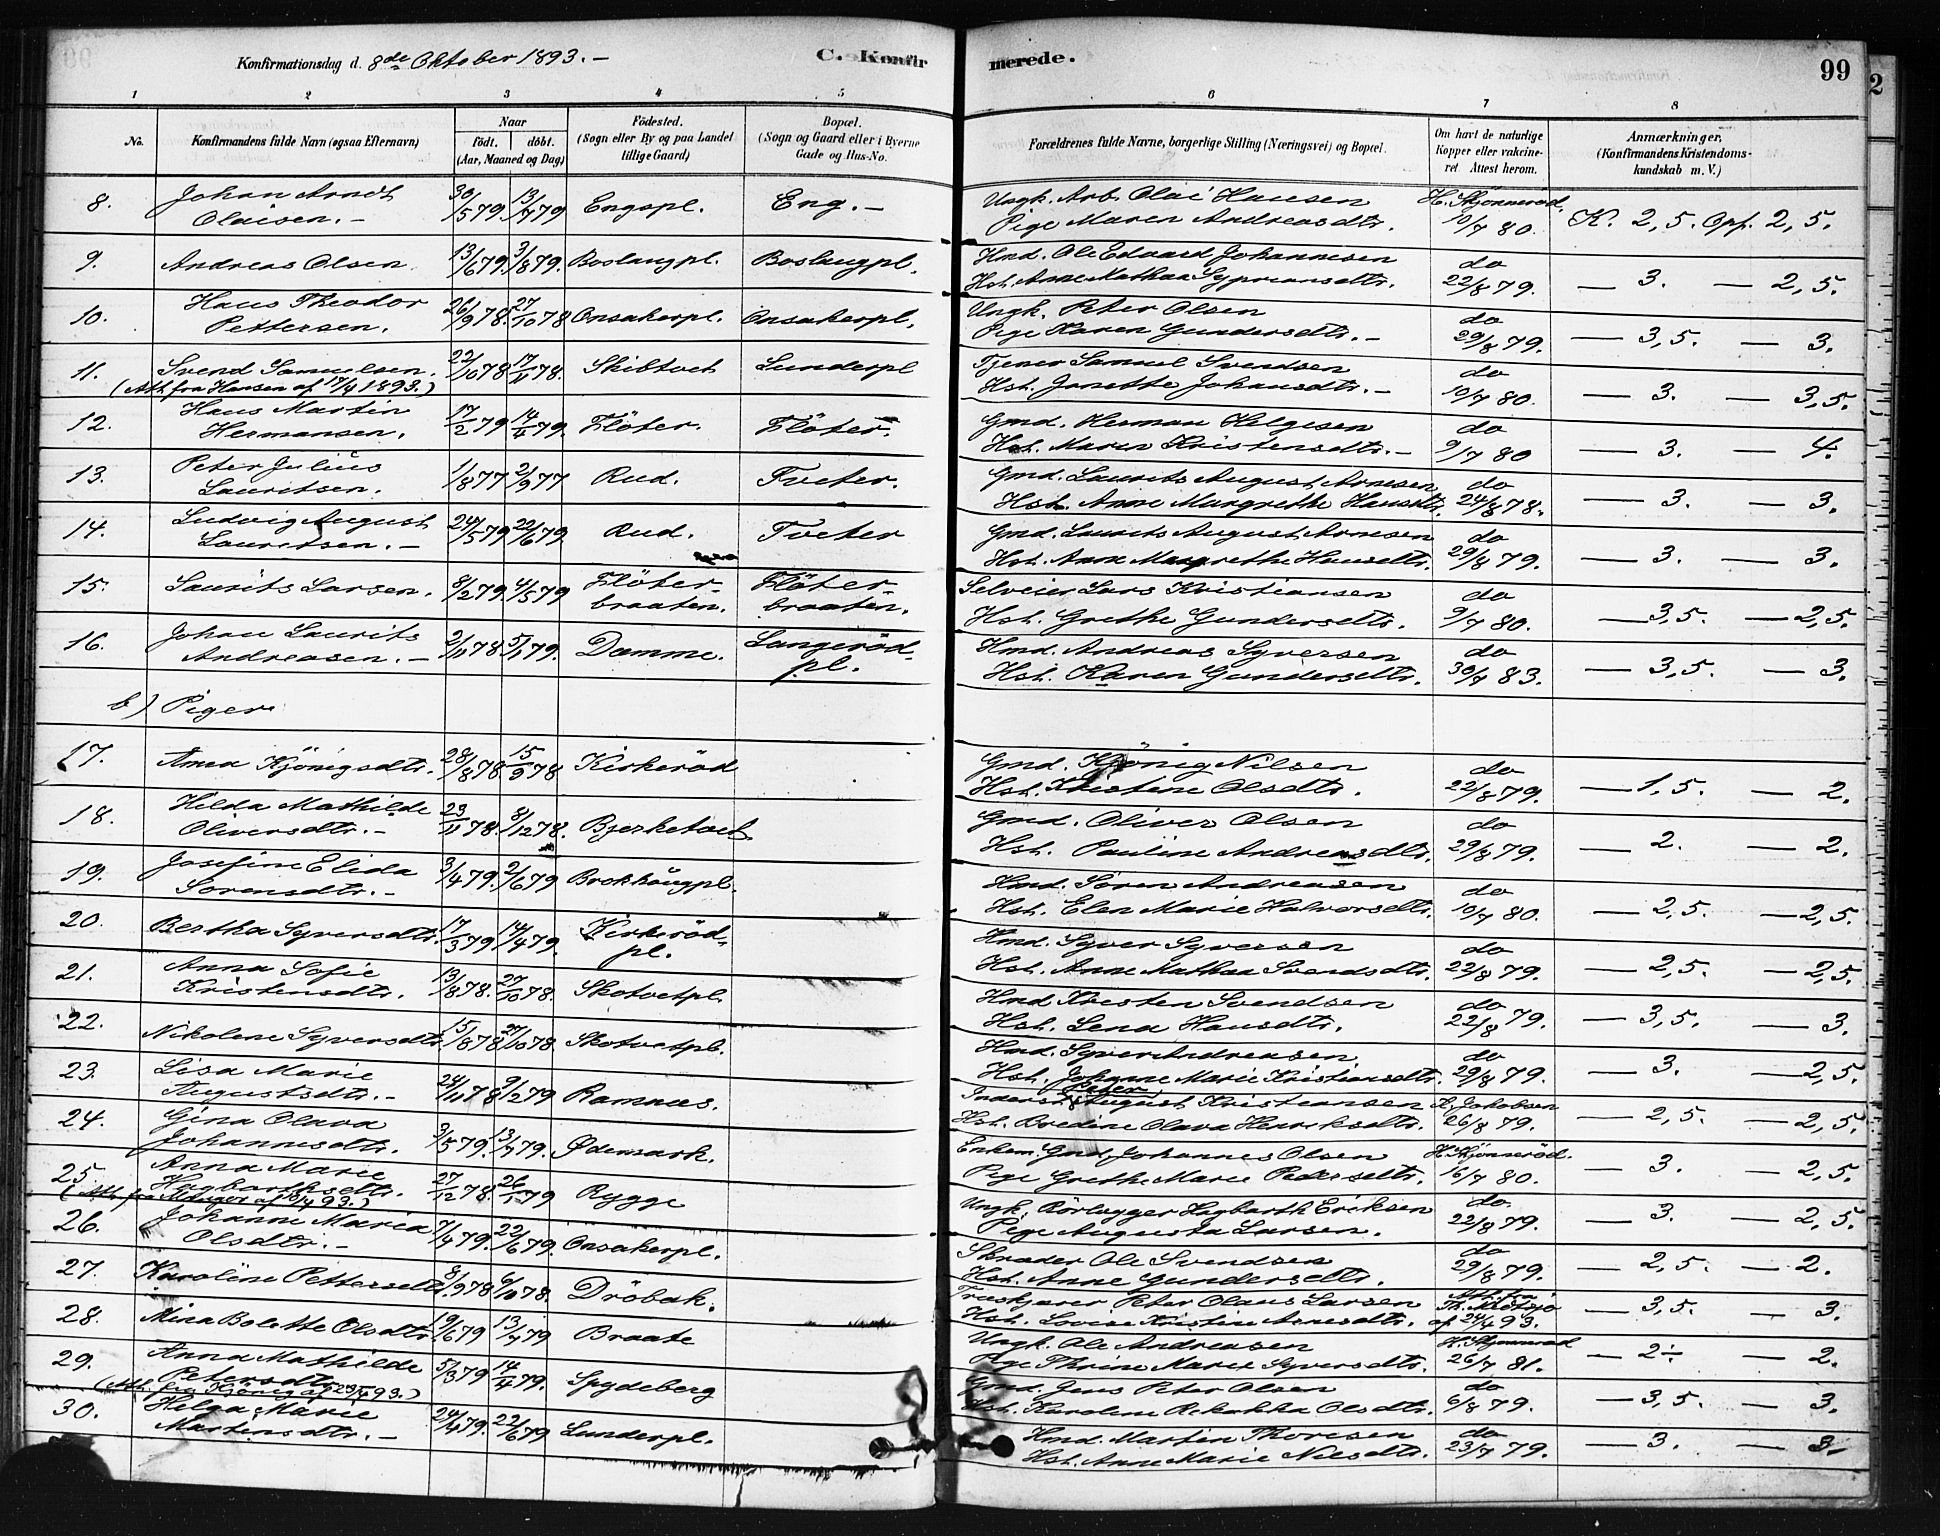 Konfirmationsdag d. 8de Oktober 1893. –
C. Konfir
merede.
99
1 2 3 4 5 6 7 8
No.
Konfirmandens fulde Navn (ogsaa Efternavn)
Naar
födt. döbt.
(Aar, Maaned og Dag)
Födested.
(Sogn eller By og paa Landet
tillige Gaard)
Bopæl.
(Sogn og Gaard eller i Byerne
Gade og Hus-No.
Forældrenes fulde Navne, borgerlige Stilling (Næringsvei) og Bopæl.
Om havt de naturlige
Kopper eller vakcine-
ret Attest herom.
Anmærkninger,
(Konfirmandens Kristendoms-
kundskab m. V.)
8. Johan Arndt Olaisen. – 30/5 79. 13/7 79 Engspl. Eng. – Ungk. Arb. Olai Hansen
Pige Maren Andreasdtr. H. Skjönneröd. 10/7 80. K. 2,5. Opf. 2,5.
9. Andreas Olsen. 13/6 79. 3/8 79. Boslangpl. Boslangpl. Hmd. Ole Edvard Johannesen
Hst. Anne Mathea Sypriansdtr. do 22/8 79. — 3. — 2,5.
10. Hans Theodor Pettersen. 26/9 78. 27/10 78 Onsakerpl. Onsakerpl. Ungk. Peter Olsen
Pige Karen Gundersdtr. – do 29/8 79. — 3,5. — 3.
11. Svend Samuelsen. 22/10 78 17/11 78. Skibtvet Lunderpl Tjener Samuel Svendsen
(Att. fra Hansen af 17/4 1893.) Hst. Janette Johansdtr. – do 10/7 80. — 3. — 3,5.
12. Hans Martin Hermansen. 17/2 79 14/4 79. Flöter. Flöter. Gmd. Herman Helgesen
Hst. Maren Kristensdtr. – do 9/7 80 — 3. — 4.
13. Peter Julius Lauritsen. 1/8 77 2/9 77 Rud. Tveter. Gmd. Laurits August Arnesen
Hst. Anne Margrethe Hansdtr. do 24/8 78. — 3. — 3.
14. Ludvig August Lauritsen. – 24/5 79 22/6 79 Rud. Tveter Gmd. Laurits August Arnesen
Hst. Anne Margrethe Hansdtr. do 29/8 79. — 3. — 3.
15. Laurits Larsen. 8/2 79. 4/5 79 Flöter-braaten. Flöter-braaten. Selveier Lars Kristiansen
Hst. Grethe Gundersdtr. do 9/7 80. — 3,5. — 2,5.
16. Johan Laurits Andreasen. – 2/11 78 5/1 79. Damme. Langeröd-pl. Hmd. Andreas Syversen
Hst. Karen Gundersdtr. do 30/7 83. — 3,5. — 3.
b) Piger
17. Anna Kjönigsdtr. 28/8 78 15/9 78 Kirkeröd Gmd. Kjönig Nilsen
Hst. Kristine Olsdtr. do 22/8 79. — 1,5. — 2.
18. Hilda Mathilde Oliversdtr. – 23/11 78. 8/12 78. Bjerketvet Gmd. Oliver Olsen
Hst. Pauline Andreasdtr. do 29/8 79. — 2. — 2.
19. Josefine Elida Sorensdtr. – 3/4 79. 2/6 79 Brekhäugpl. Hmd. Sören Andreasen
Hst. Elen Marie Halvorsdtr. do 10/7 80. — 2,5. — 2,5.
20. Bertha Syversdtr. 17/3 79 14/4 79. Kirkeröd-pl. Hmd. Syver Syversen
Hst. Anne Mathea Svendsdtr. do 22/8 79. — 2,5. — 2,5.
21. Anna Sofie Kristensdtr. 13/8 78. 27/10 78. Skotvetpl. Hmd. Kristen Svendsen
Hst. Lena Hansdtr. do 22/8 79. — 3,5. — 3.
22. Nikolene Syversdtr. 15/8 78 27/10 78. Skotvetpl. Hmd. Syver Andreasen
Hst. Johanne Marie Kristiansdtr. do 29/8 79. — 3. — 2,5.
23. Lisa Marie Augustsdtr. – 24/11 78 9/2 79 Ramnæs. Inderst Peter August Kristiansen
Hst. Bredine Olava Henriksdtr. L. Jakobsen 26/8 79. — 2,5. — 2,5.
24. Gina Olava Johannesdtr. 3/5 79. 13/7 79. Ødemark. Enkem. Gmd Johannes Olsen
Pige Grethe Marie Pedersdtr. H. Skjönneröd. 16/7 80. — 3. — 2,5.
25. Anna Marie Hagbarthsdtr. 27/12 78. 26/1 79 Rygge Ungk. Rörlægger Hagbarth Eriksen
Pige Augusta Larsen. do. 22/8 79. — 3. — 2,5.
26. Johanne Maria Olsdtr. – 7/4 79. 22/6 79. Onsakerpl. Skræder Ole Svendsen
Hst. Anne Gundersdtr. do 29/8 79. — 2,5. — 2.
27. Karoline Pettersdtr. 8/9 78 6/10 78. Dröbak. Træskjærer Peter Olaus Larsen
Hst. Lovise Kristine Arnesdtr. Att. fra af 24/4 93. — 3,5. — 3.
28. Mina Bolette Olsdtr. 19/6 79 13/7 79 Braate Ungk. Ole Andreasen
Pige Thrine Marie Syversdtr. H. Skjönneröd 26/7 81. — 2÷ — 2.
29. Anna Mathilde Petersdtr. 5/3 79 14/4 79. Spydeberg Gmd. Jens Peter Olsen
(Att. fra Kjönig af 23/4 93.) Hst. Karoline Rebekka Olsdtr. do 6/8 79. — 3,5. — 3.
30. Helga Marie Martinsdtr. – 24/4 79. 22/6 79 Lunderpl. Hmd. Martin Thoresen
Hst. Anne Marie Nilsdtr. do 23/7 79. — 3. — 3.